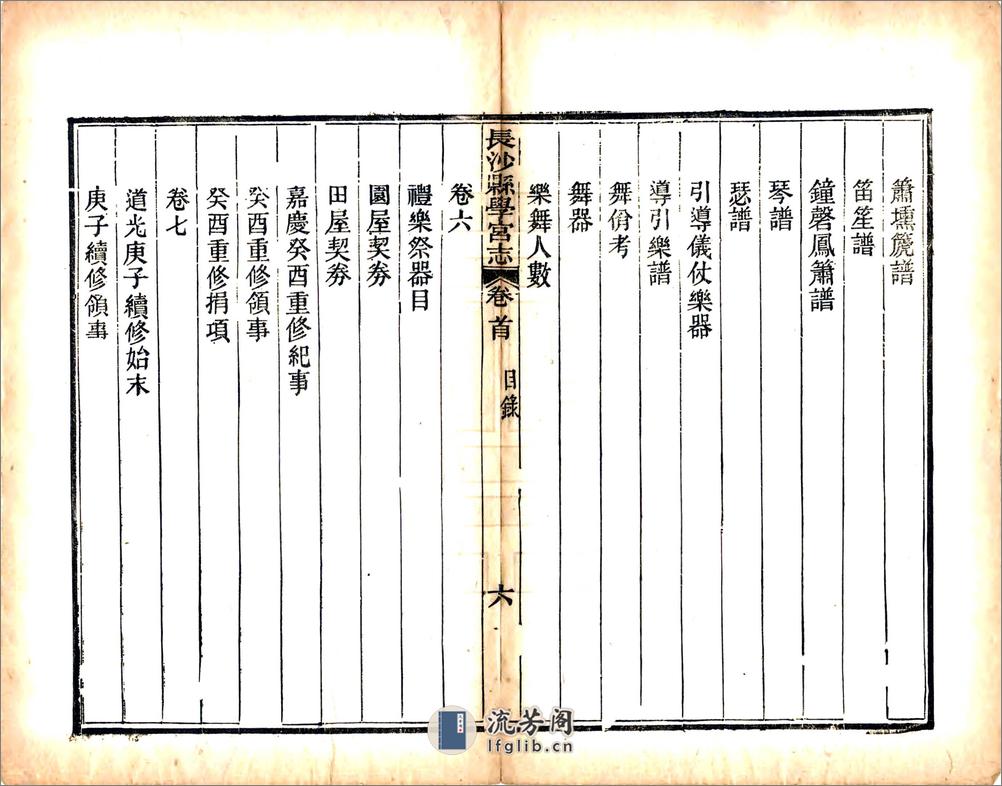 簫壎篪譜
笛笙譜
鐘磬鳳簫譜
琴譜
瑟譜
引導儀仗樂器
導引樂譜
舞佾考
舞器
樂舞人數
長沙縣學宮志 卷首 目錄 六
卷六
禮樂祭器目
園屋契券
田屋契券
嘉慶癸酉重修紀事
癸酉重修領事
癸酉重修捐項
卷七
道光庚子續修始末
庚子續修領事
流芳阁
lfglib.cn